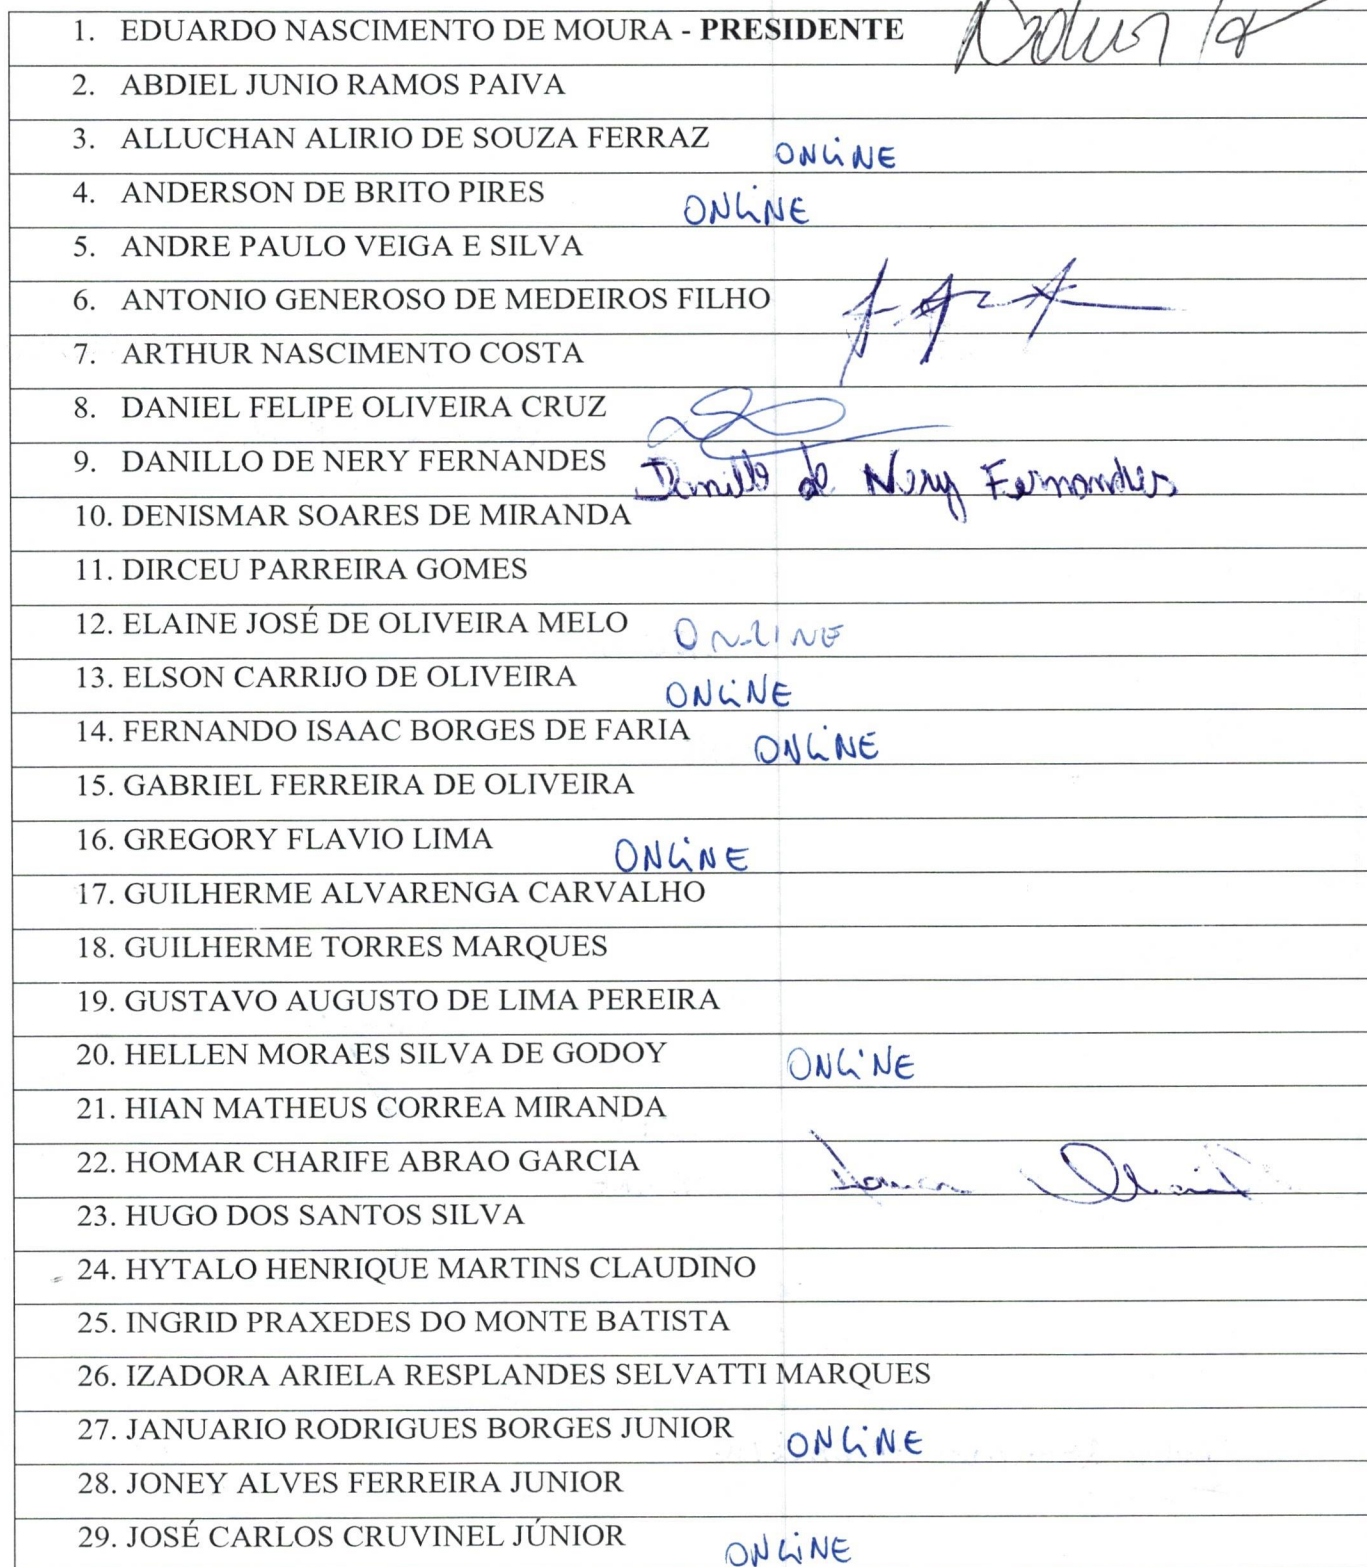 1. EDUARDO NASCIMENTO DE MOURA - PRESIDENTE
2. ABDIEL JUNIO RAMOS PAIVA
3. ALLUCHAN ALIRIO DE SOUZA FERRAZ ONLINE
4. ANDERSON DE BRITO PIRES ONLINE
5. ANDRE PAULO VEIGA E SILVA
6. ANTONIO GENEROSO DE MEDEIROS FILHO
7. ARTHUR NASCIMENTO COSTA
8. DANIEL FELIPE OLIVEIRA CRUZ
9. DANILLO DE NERY FERNANDES Danillo de Nery Fernandes
10. DENISMAR SOARES DE MIRANDA
11. DIRCEU PARREIRA GOMES
12. ELAINE JOSÉ DE OLIVEIRA MELO ON-LINE
13. ELSON CARRIJO DE OLIVEIRA ONLINE
14. FERNANDO ISAAC BORGES DE FARIA ONLINE
15. GABRIEL FERREIRA DE OLIVEIRA
16. GREGORY FLAVIO LIMA ONLINE
17. GUILHERME ALVARENGA CARVALHO
18. GUILHERME TORRES MARQUES
19. GUSTAVO AUGUSTO DE LIMA PEREIRA
20. HELLEN MORAES SILVA DE GODOY ONLINE
21. HIAN MATHEUS CORREA MIRANDA
22. HOMAR CHARIFE ABRAO GARCIA
23. HUGO DOS SANTOS SILVA
24. HYTALO HENRIQUE MARTINS CLAUDINO
25. INGRID PRAXEDES DO MONTE BATISTA
26. IZADORA ARIELA RESPLANDES SELVATTI MARQUES
27. JANUARIO RODRIGUES BORGES JUNIOR ONLINE
28. JONEY ALVES FERREIRA JUNIOR
29. JOSÉ CARLOS CRUVINEL JÚNIOR ONLINE